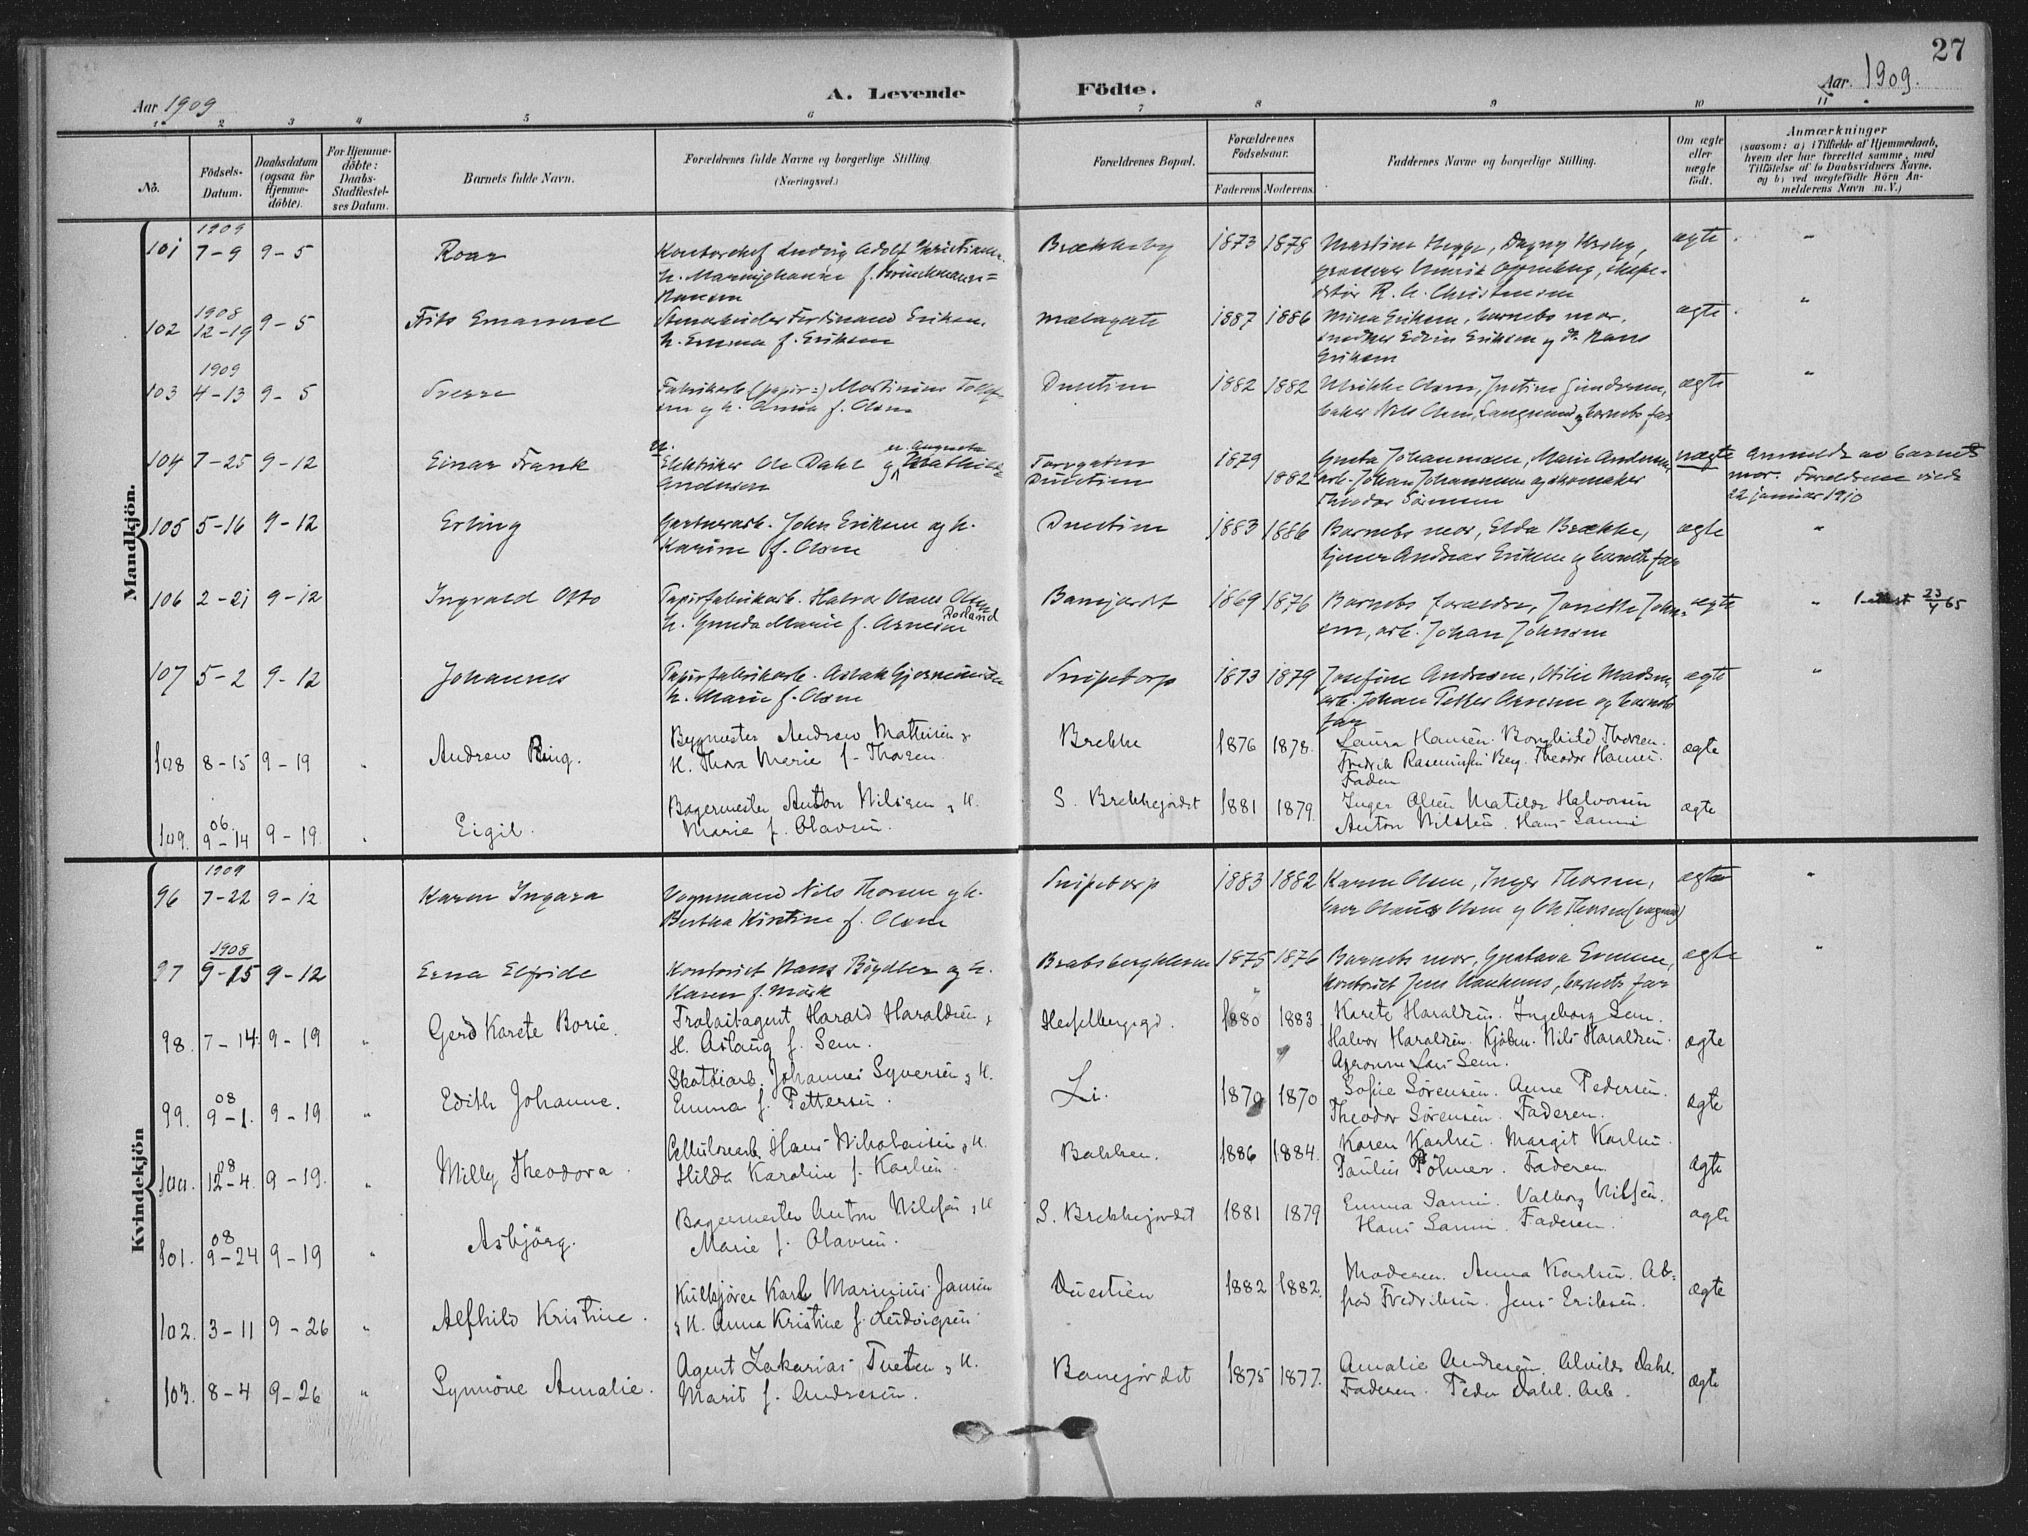 27
Aar 1909
A. Levende
Födte.
Aar. 1909.
1 2 3 4 5 6 7 8 9 10 11
No.
Födsels-Datum.
Daabsdatum (ogsaa for Hjemme-döbte).
For Hjemme-döbte: Daabs-Stadfæstelses Datum.
Barnets fulde Navn.
Forældrenes fulde Navne og borgerlige Stilling (Næringsvei.)
Forældrenes Bopæl.
Forældrenes Födselsaar.
Faderens Moderens
Faddernes Navne og borgerlige Stilling.
Om ægte eller uægte födt.
Anmærkninger
(saasom: a) i Tilfælde af Hjemmedaab, hvem der har forrettet samme, med Tilföielse af to Daabsvidners Navne, og b) ved uægtefödte Börn Anmelderens Navn m. V.)
Mandkjön.
1909
101 7-9 9-5 Roar
Kontorchef Ludvig Adolf Christiansen
Brækkeby 1873 1878 Martine Hegge, Dagny
R. A. Christensen
ægte "
1908
102 12-19 9-5 Frits Emanuel
Ferdinand Eriksen
h. Emma f. Eriksen
Mælagata 1887 1886 Mina Eriksen, barnets mor,
snedker Edvin Eriksen og Hans
Eriksen
ægte "
1909
103 4-13 9-5 Sverre
Fabrikarb. (papir-) Martinius Tollef-
sen og h. Anna f. Olsen
Duestien 1882 1882 Ulrikke Olsen, Justine Gundersen,
baker Nils Olsen, Langesund og barnets far
ægte "
104 7-25 9-12 Einar Frank
u.
Elektriker Ole Dahl og Mathilde
Andersen
Torvgaten
Duestien
1879
1882
Gusta Johannesen, Marie Andersen,
arb. Johan Johannesen og skomaker
Theodor Sörensen
uægte
Anmeldt av barnets
mor. Foreldrene viede
22 januar 1910
105 5-16 9-12 Erling
Gartnerarb. John Eriksen og h.
Karine f. Olsen
Duestien 1883 1886 Barnets mor, Elda Brække,
Andreas Eriksen og barnets far
ægte "
106 2-21 9-12 Ingvald Otto
Papirfabrikarb. Halvor Hans Olsen
Rorland
h. Gunda Marie f. Arnesen
Banejordet 1869 1876 Barnets forældre, Janette John-
sen, arb. Johan Johnsen
ægte "
23/4 65
107 5-2 9-12 Johannes
Papirfabrikarb. Aslak Gjermundsen
h. Marie f. Olsen
Snipetorp 1873 1879 Josefine Andresen, Otilie Madsen,
arb. Johan Petter Arnesen og barnets
far
ægte "
108 8-15 9-19 " Andrew Ring.
Bygmester Andrew Mathisen &
H. Thora Marie f. Thorsen.
Brekke 1876 1878. Laura Hansen. Borghild Thorsen.
Fredrik Rasmussen Berg. Theodor Hansen.
Faderen
ægte
06
109. 9-14 9-19. " Eigil.
Bagermester Anton Nilsen & H.
Marie f. Olavsen.
S. Brekkejordet 1881 1879. Inger Olsen Matilde Halvorsen
Anton Nilssen. Hans Sanni
ægte
Kvindekjön
1909
96 7-22 9-12 Karen Ingara
Vognmand Nils Thorsen og h.
Bertha Kirstine f. Olsen
Snipetorp 1883 1882 Karen Olsen, Inger Thorsen,
Olsen og Ole Thorsen
ægte "
1908
97 9-15 9-12 Erna Elfride
Kontorist Hans Böydler og h.
Karen f. Mörk
Bratsbergkleven 1875 1876 Barnets mor, Gustava Evensen,
kontorist Jens Hankenes, barnets far
ægte "
98. 7-14. 9-19 " Gerd Karete Borie.
Harald Haraldsen &
H. Aslaug f. Sem.
Hesselbergsgd. 1880 1883. Karete Haraldsen. Ingeborg Sem.
Halvor Haraldsen. Kjöbm. Nils Haraldsen.
Agronom Lars Sem.
ægte
08
99. 9-1. 9-19 " Edith Johanne.
Skotöiarb. Johannes Syversen & H.
Emma f. Pettersen.
Li. 1870 1870 Sofie Sörensen. Anne Pedersen.
Theodor Sörensen. Faderen.
ægte
08
100. 12-4. 9-19. " Milly Theodora.
Cellulosearb. Hans Nikolaisen & H.
Hilda Karoline f. Karlsen.
Bakken. 1886 1884. Karen Karlsen. Margit Karlsen.
Paulus Pölner. Faderen.
ægte
08
101. 9-24 9-19 " Asbjörg.
Bagermester Anton Nilssen & H.
Marie f. Olavsen.
S. Brekkejordet 1881 1879 Emma Sanni. Valborg Nilssen.
Hans Sanni. Faderen.
ægte
102. 3-11 9-26 " Alfhild Kristine.
Kulkjörer Karl Marinius Jansen
& H. Anna Kristine f. Ludvigsen
Duestien 1882 1882. Moderen. Anna Karlsen. Al-
fred Fredriksen. Jens Eriksen.
ægte
103. 8-4 9-26 " Synnöve Amalie.
Agent Zakarias Tveten & H.
Marit f. Andresen.
Banejordet 1875 1877. Amalie Andresen. Alvilde Dahl.
Faderen. Peder Dahl. Arb.
ægte